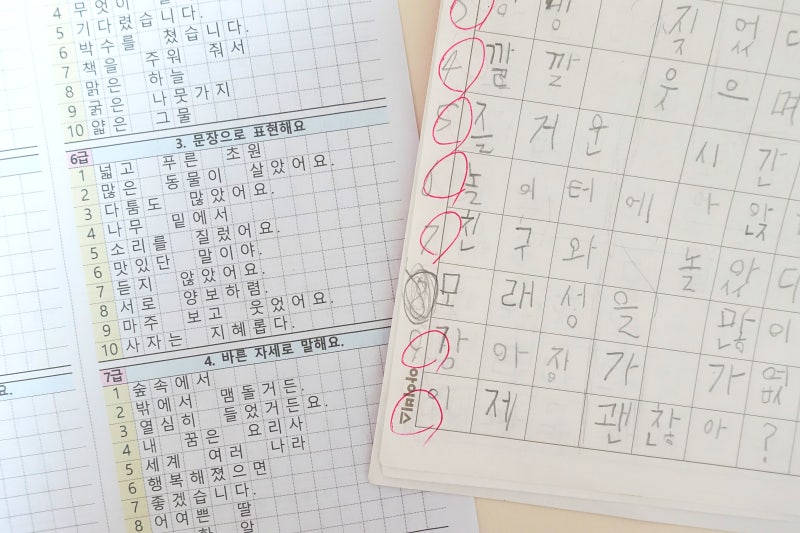 4 무엇이
5 기다렸습니다.
6 박수를 쳤습니다.
7 책을 주워 줘서
8 맑은 하늘
9 굵은 나뭇가지
10 얇은 그물
3. 문장으로 표현해요
6급
1 넓고 푸른 초원
2 많은 동물이 살았어요.
3 다툼도 많았어요.
4 나무 밑에서
5 소리를 질렀어요.
6 맛있단 말이야.
7 듣지 않았어요.
8 서로 양보하렴.
9 마주 보고 웃었어요.
10 사자는 지혜롭다.
4. 바른 자세로 말해요.
7급
1 숲속에서
2 밖에서 맴돌거든.
3 열심히 들었거든요.
4 내 꿈은 요리사
5 세계 여러 나라
6 행복해졌으면
7 좋겠습니다.
8 어여쁜 딸
알
요.
짓 었 다
4 깔깔 웃으며
5 즐거운 시간
놀이터에 아 앉
7 친구와 놀았다
8 모래성을 많이
장 아 장 가 가 없
이제 괜찮아?